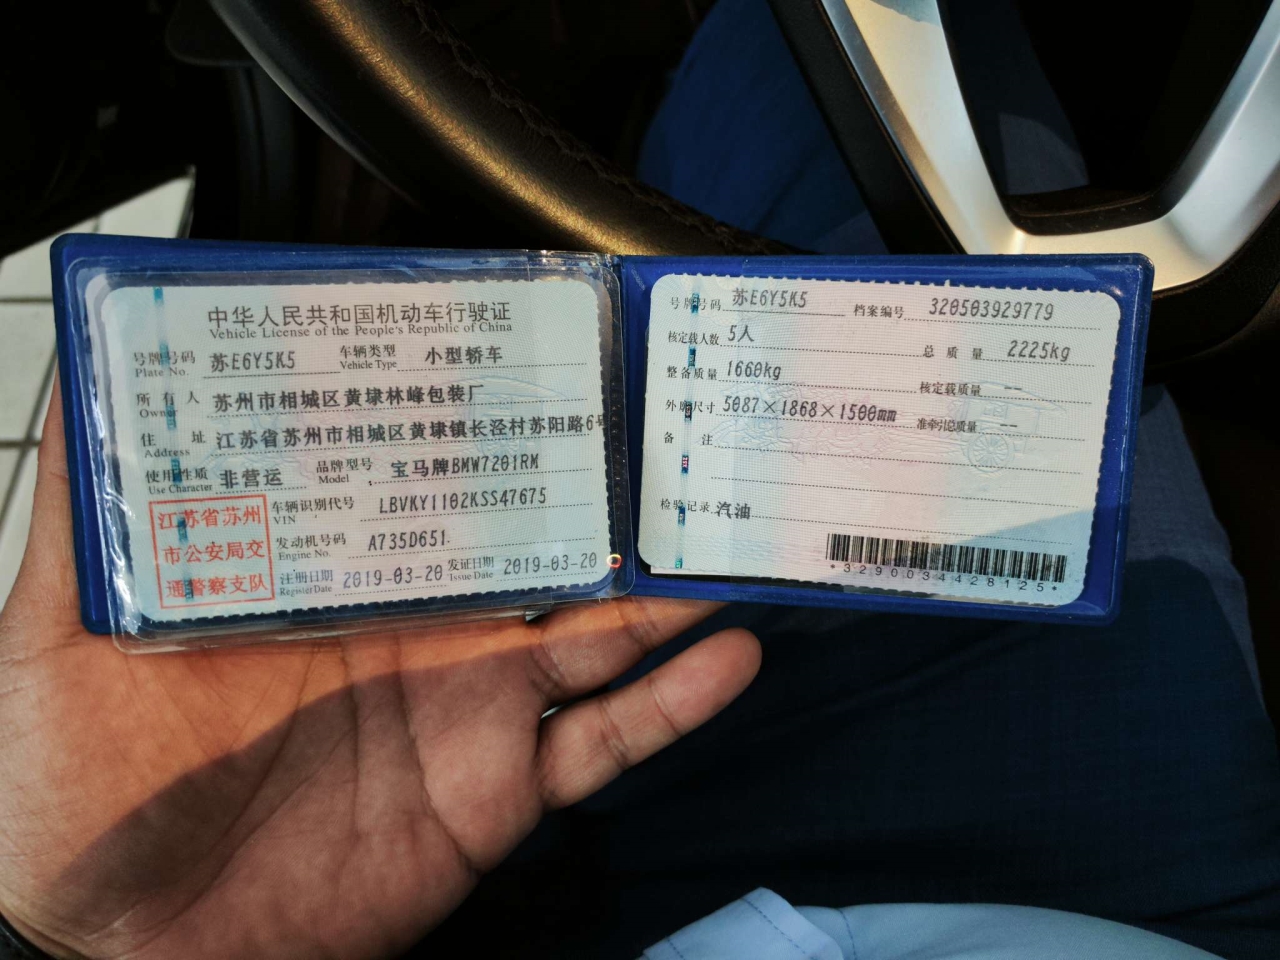 中华人民共和国机动车行驶证
Vehicle License of the People's Republic of China
号牌号码 苏E6Y5K5 车辆类型 小型轿车
Plate No. Vehicle Type
所有人 苏州市相城区黄埭林峰包装厂
Owner
住址 江苏省苏州市相城区黄埭镇长泾村苏阳路6号
Address
使用性质 非营运 品牌型号 宝马牌BMW7201RM
Use Character Model
江苏省苏州
市公安局交
通警察支队
车辆识别代号 LBVKY1102KSS47675
VIN
发动机号码 A735D651
Engine No.
注册日期 2019-03-20 发证日期 2019-03-20
Register Date Issue Date
号牌号码 苏E6Y5K5 档案编号 320503929779
核定载人数 5人 总质量 2225kg
整备质量 1660kg 核定载质量 --
外廓尺寸 5087×1868×1500mm 准牵引总质量 --
备注
检验记录 汽油
*3290034428125*